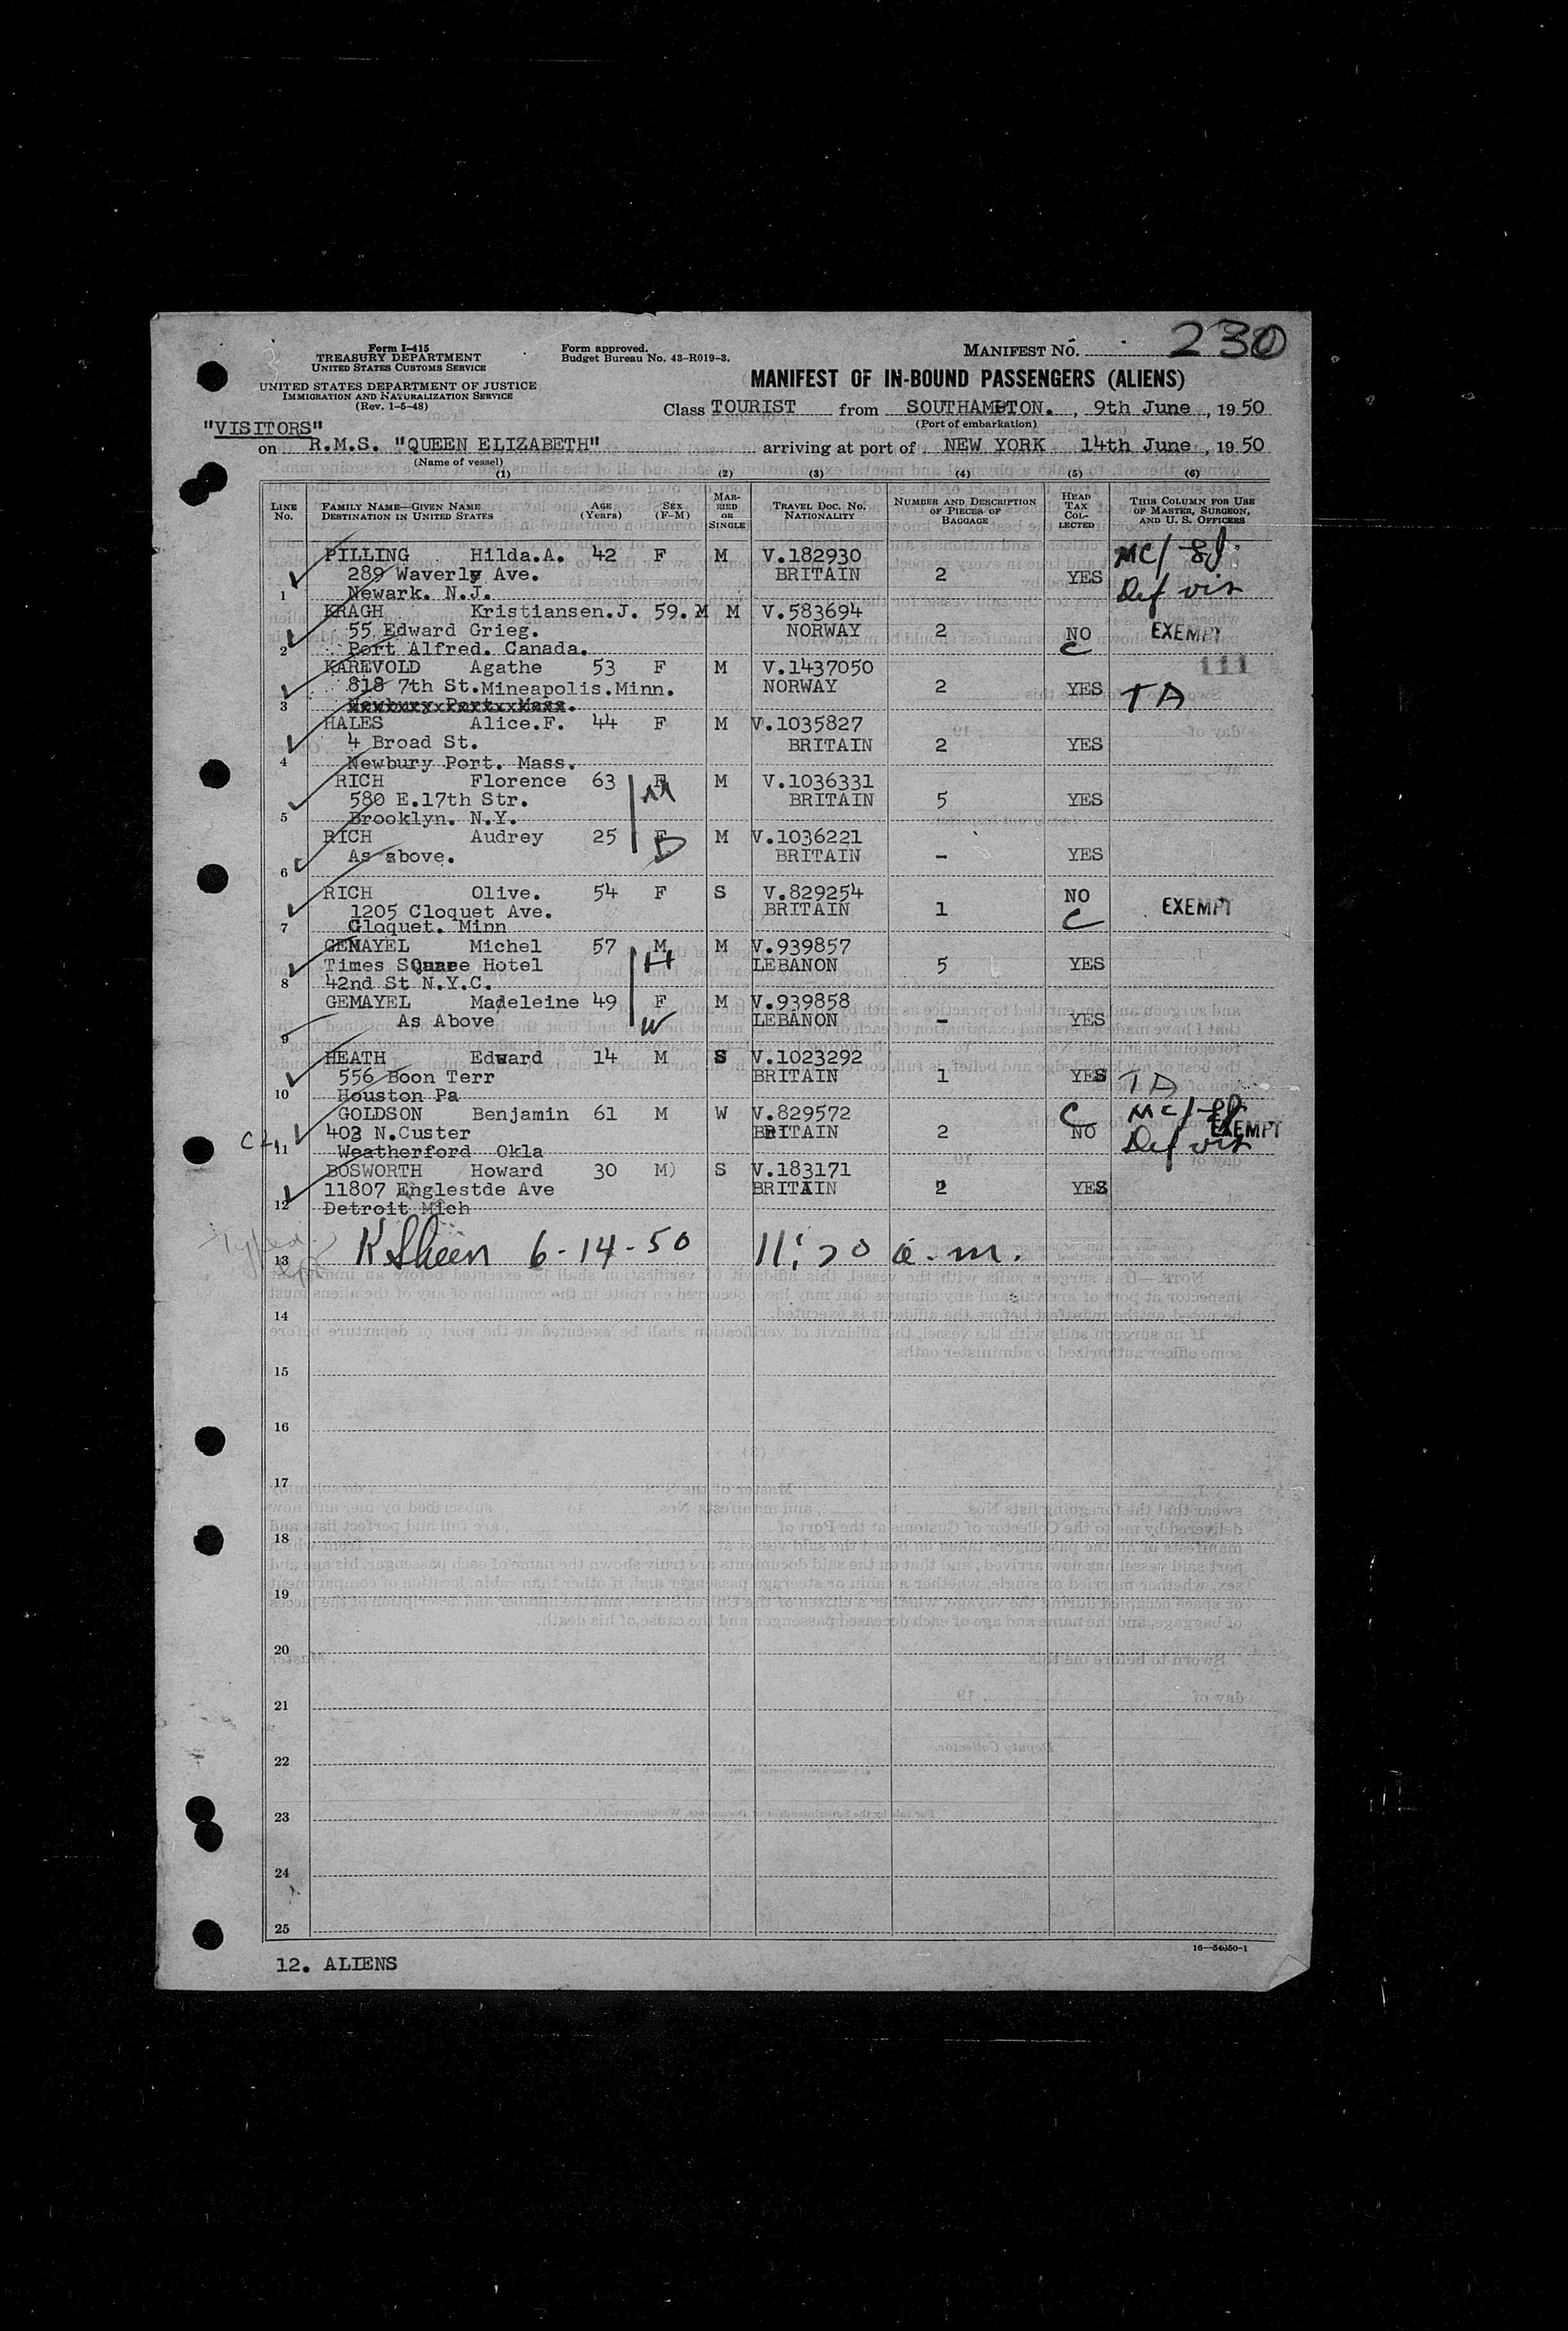 230
Form I-415
TREASURY DEPARTMENT
UNITED STATES CUSTOMS SERVICE
UNITED STATES DEPARTMENT OF JUSTICE
IMMIGRATION AND NATURALIZATION SERVICE
(Rev. 1-5-48)
Form approved.
Budget Bureau No. 43-R019-3.
MANIFEST NO.
MANIFEST OF IN-BOUND PASSENGERS (ALIENS)
Class TOURIST from SOUTHAMPTON. , 9th June , 19 50
(Port of embarkation)
"VISITORS"
on R.M.S. "QUEEN ELIZABETH" arriving at port of NEW YORK 14th June , 19 50
(Name of vessel)
(1) (2) (3) (4) (5) (6)
LINE NO. FAMILY NAME—GIVEN NAME DESTINATION IN UNITED STATES AGE (Years) SEX (F-M) MARRIED OR SINGLE TRAVEL DOC. NO. NATIONALITY NUMBER AND DESCRIPTION OF PIECES OF BAGGAGE HEAD TAX COLLECTED THIS COLUMN FOR USE OF MASTER, SURGEON, AND U. S. OFFICERS
PILLING Hilda.A. 42 F M V.182930 MC/
289 Waverly Ave. BRITAIN 2 YES Def vis
1 Newark. N.J.
KRAGH Kristiansen.J. 59. M M V.583694
55 Edward Grieg. NORWAY 2 NO EXEMPT
2 Port Alfred. Canada. C
KAREVOLD Agathe 53 F M V.1437050 111
818 7th St.Mineapolis.Minn. NORWAY 2 YES TA
3 Newbury Port Mass.
HALES Alice.F. 44 F M V.1035827
4 Broad St. BRITAIN 2 YES
4 Newbury Port. Mass.
RICH Florence 63 F M V.1036331
580 E.17th Str. M BRITAIN 5 YES
5 Brooklyn. N.Y.
RICH Audrey 25 F M V.1036221
As above. D BRITAIN - YES
6
RICH Olive. 54 F S V.829254 NO
1205 Cloquet Ave. BRITAIN 1 C EXEMPT
7 Cloquet. Minn
GEMAYEL Michel 57 M M V.939857
Times Square Hotel H LEBANON 5 YES
8 42nd St N.Y.C.
GEMAYEL Madeleine 49 F M V.939858
As Above W LEBANON - YES
9
HEATH Edward 14 M S V.1023292
556 Boon Terr BRITAIN 1 YES TA
10 Houston Pa
GOLDSON Benjamin 61 M W V.829572 C MC/
403 N.Custer BRITAIN 2 NO EXEMPT
11 Weatherford Okla Def vis
BOSWORTH Howard 30 M) S V.183171
11807 Englestde Ave BRITAIN 2 YES
12 Detroit Mich
13 K Sheen 6-14-50 11:20 a.m.
14
15
16
17
18
19
20
21
22
23
24
25
12. ALIENS